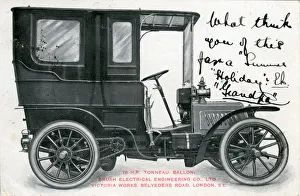 What think
you of this
for a Summer
"Holiday": Eh.
"Grandpa"
16-H.P. TONNEAU BALLON.
BRUSH ELECTRICAL ENGINEERING CO., LTD.
VICTORIA WORKS BELVEDERE ROAD, LONDON, S.E.